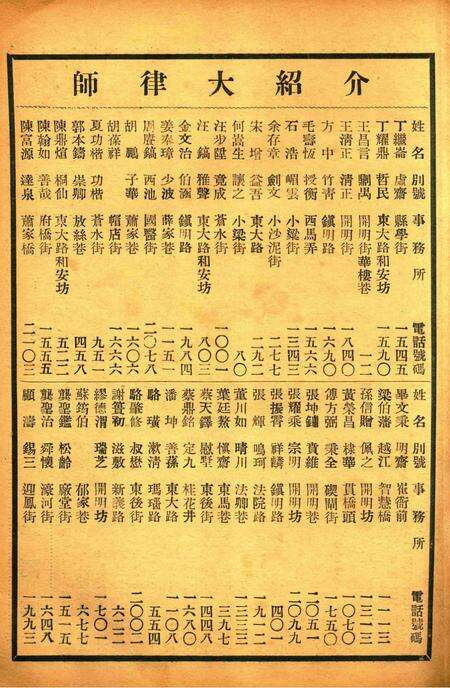 介紹大律師
姓名 別號 事務所 電話號碼
丁繼崙 虛齋 縣學街 一五四五
丁耀鼎 哲民 東大路和安坊 一五九〇
王昌言 開明街華樓巷 一二
王清正 清正 開明街 一八四〇
方中 竹青 鎭明路 一六九〇
毛壽恆 授衡 西馬弄 一五六六
石浩 嵋雲 小梁街 一三四三
余存章 劍文 小沙泥街 二七七
宋增 益吾 東大路 二九二
何嵩生 讓之 小梁街 八〇
竟成 蒼水街 一〇〇一
汪鎬 雅聲 東大路和安坊 八〇三
金文治 伯涵 鎭明路 一九八四
姜奉璋 少波 薛家巷 一一五一
周賡鎬 西池 國醫街 二〇七八
胡鵬 子華 蕭家巷 一六〇六
胡葆祥 帽店街 一六六六
夏功楷 功楷 蒼水街 九五一
郭本鑄 崇卿 放絲巷 四五八
陳鼎煊 桐仙 東大路和安坊 五二二
陳翰如 善哉 府橋街 一五五五
陳富源 達泉 蕭家橋 二一〇三
姓名 別號 事務所 電話號碼
畢文秉 明齋 崔衙前 一一一三
梁伯藩 越江 智慧橋 一三一三
孫信贈 佩之 開明街 一三一三
黃榮昌 棣華 貫橋頭 一〇七〇
傅方弼 秉全 碶閘街 一七五〇
張坤鏞 賁維 開明巷 二〇五一
張耀乘 宗明 開明坊 二〇九九
張振霄 祥麟 鎭明路 四〇一
張輝 鳴珂 法院路 一九一二
董川如 晴川 法卿巷 一三三三
葉廷鰲 愼齋 東馬巷 三九七
蔡天鐸 慰墅 東後街 一四四八
蔡鼎銘 定九 桂花井 一六八〇
潘坤 善蓀 東大路 一一〇八
駱璜 漱清 瑪瑙路 五五四
駱肇修 叔懋 東後街 二〇〇二
謝簹初 滋敷 新義路 六二二
繆德渭 瑞芝 開明坊 一七〇一
蘇筠伯 郁家巷 六七七
龔聖鑑 松齡 廠堂街 一五一五
龔聖治 舜懷 濠河街 一六四八
顧濤 錫三 迎鳳街 一九九三